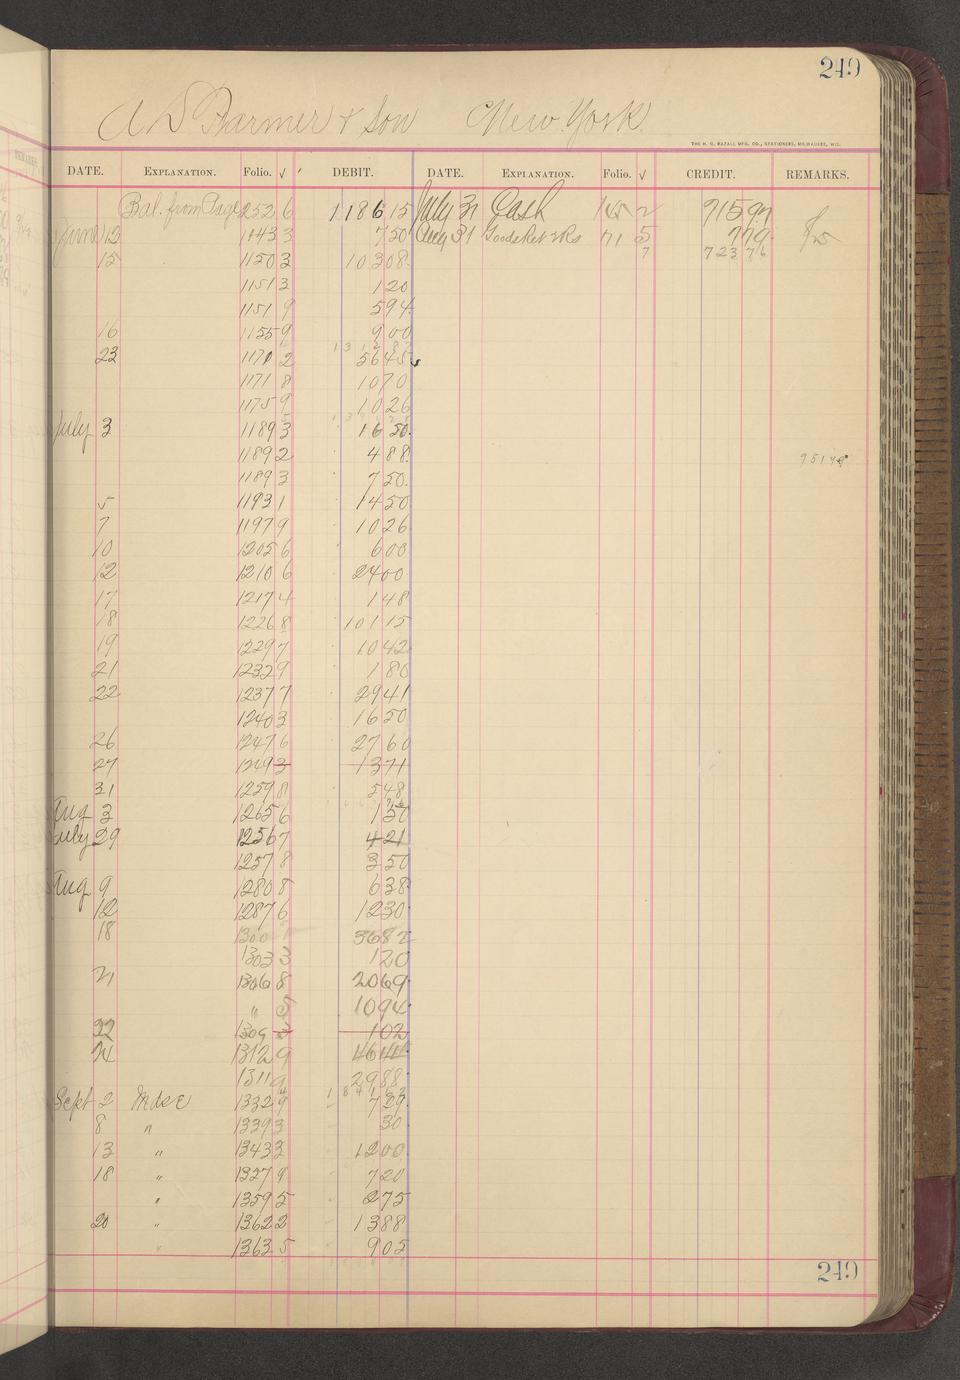 249
A D Farmer & Son New York
THE H. G. RAZALL MFG. CO., STATIONERS, MILWAUKEE, WIS.
DATE. EXPLANATION. Folio. √ DEBIT. DATE. EXPLANATION. Folio. √ CREDIT. REMARKS.
Bal. from Page 252 6 1186 15 July 31 Cash 2 715 97
June 12 1143 3 7 50 Aug 31 Goods Ret 71 5 7 79
15 1150 3 103 08 7 723 76
1151 3 1 20
1151 9 5 94
16 1155 9 9 00
23 1170 2 56 45
1171 8 10 70
1175 9 10 26
July 3 1189 3 16 50
1189 2 4 88 951 48
1189 3 7 50
5 1193 1 14 50
7 1197 9 10 26
10 1205 6 6 00
12 1210 6 24 00
17 1217 4 1 48
18 1226 8 101 15
19 1229 7 10 42
21 1232 9 1 80
22 1237 7 29 41
1240 3 16 50
26 1247 6 27 60
27 1249 3 13 71
31 1259 8 5 48
Aug 3 1265 6 1 50
July 29 1256 7 4 21
1257 8 3 50
Aug 9 1280 8 6 38
12 1287 6 12 30
18 1300 36 82
1303 3 1 20
21 1306 8 20 69
" 5 10 94
22 1309 3 1 02
24 1312 9 46 41
1311 9 29 88
Sept 2 Mdse 1332 9 7 29
8 " 1339 3 30
13 " 1343 3 12 00
18 " 1327 9 7 20
" 1359 5 2 75
20 " 1362 2 13 88
" 1363 5 9 05
249